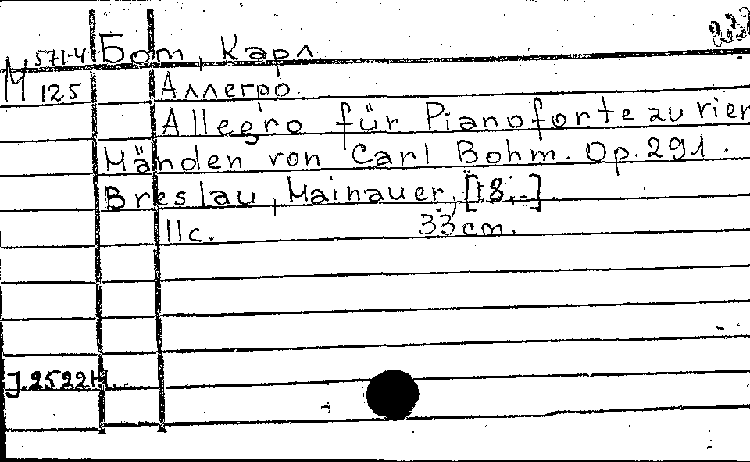 571-4 Бот, Карл
М 125 Аллегро.
Allegro für Pianoforte zu vier
Händen von Carl Bohm. Op. 291.
Breslau, Mainauer, [18..]
11 c. 33 cm.
J.25221